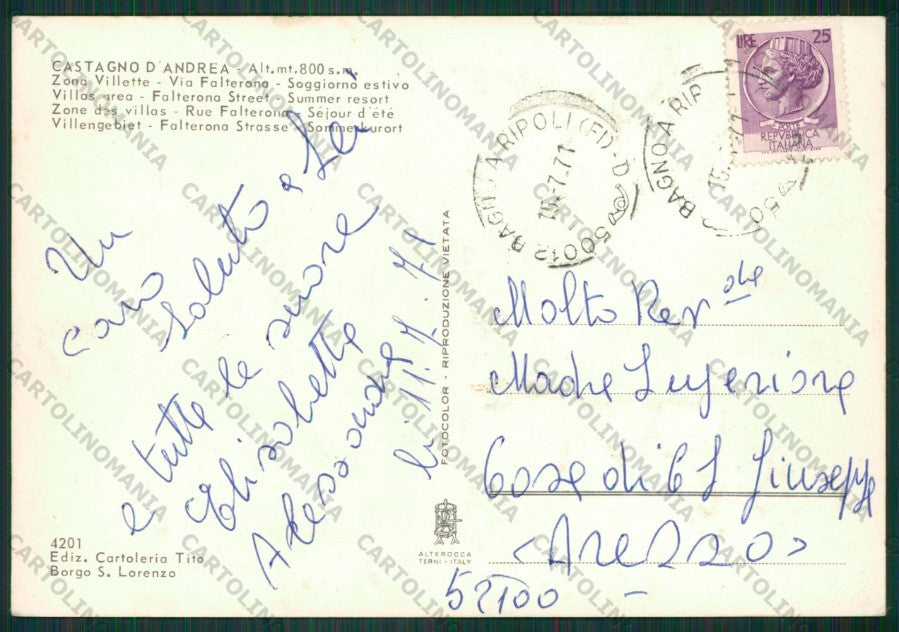 CASTAGNO D'ANDREA - Alt.mt.800 s.m.
Zona Villette - Via Falterona - Soggiorno estivo
Villas area - Falterona Street - Summer resort
Zone des villas - Rue Falterona - Séjour d'été
Villengebiet - Falterona Strasse - Sommerkurort
Un
caro saluto a Lei
e tutte le suore
Elisabetta
Alessandra
li 11.7.71
4201
Ediz. Cartoleria Tito
Borgo S. Lorenzo
FOTOCOLOR - RIPRODUZIONE VIETATA
ALTEROCCA
TERNI - ITALY
LIRE 25
POSTE
REPVBBLICA
ITALIANA
BAGNO A RIPOLI (FI) - D
15.7.71
50012
BAGNO A RIP
15.7.71
50
Molto Rev.de
Madre Superiora
Casa di S Giusepp
<Arezzo>
52100 -
CARTOLINOMANIA